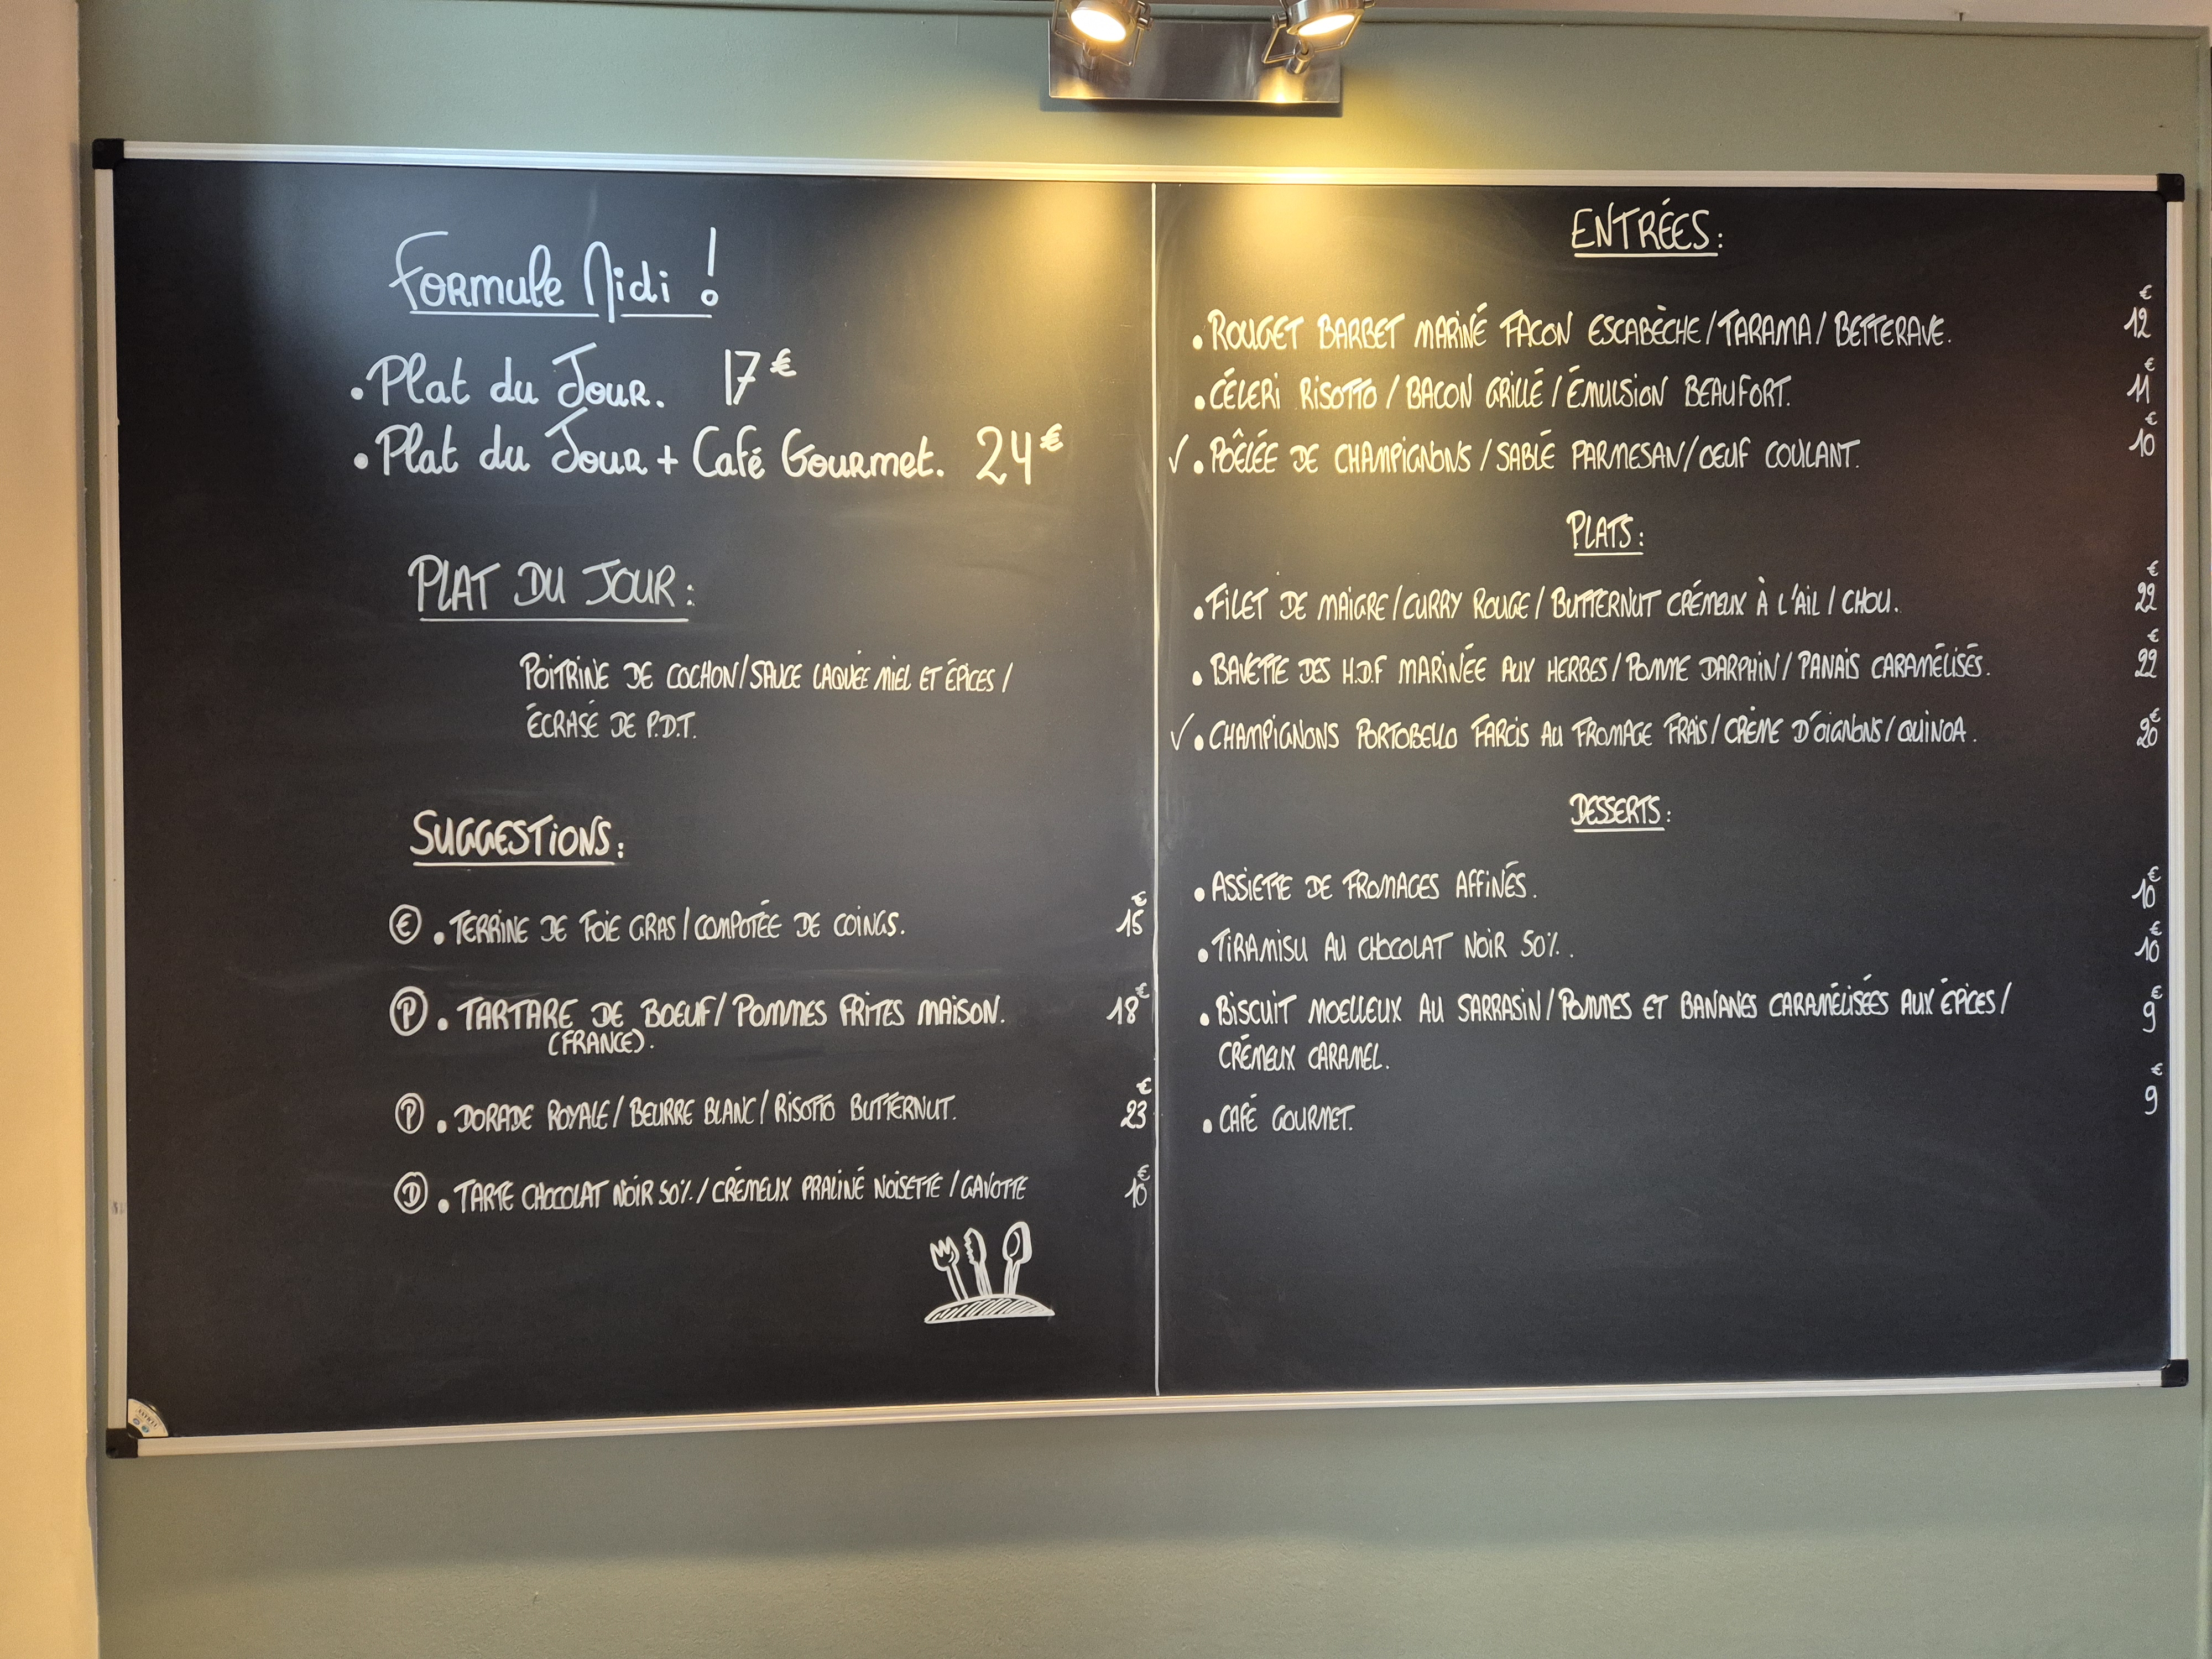 Formule Midi !
• Plat du Jour. 17€
• Plat du Jour + Café Gourmet. 24€
PLAT DU JOUR :
POITRINE DE COCHON / SAUCE LAQUÉE MIEL ET ÉPICES /
ÉCRASÉ DE P.D.T.
SUGGESTIONS :
Ⓔ • TERRINE DE FOIE GRAS / COMPOTÉE DE COINGS. 15€
Ⓟ • TARTARE DE BOEUF / POMMES FRITES MAISON. 18€
(FRANCE).
Ⓟ • DORADE ROYALE / BEURRE BLANC / RISOTTO BUTTERNUT. 23€
Ⓓ • TARTE CHOCOLAT NOIR 50% / CRÉMEUX PRALINÉ NOISETTE / GAVOTTE 10€
ENTRÉES :
• ROUGET BARBET MARINÉ FACON ESCABÈCHE / TARAMA / BETTERAVE. 12€
• CÉLERI RISOTTO / BACON GRILLÉ / ÉMULSION BEAUFORT. 11€
✓ • POÊLÉE DE CHAMPIGNONS / SABLÉ PARMESAN / OEUF COULANT. 10€
PLATS :
• FILET DE MAIGRE / CURRY ROUGE / BUTTERNUT CRÉMEUX À L'AIL / CHOU. 22€
• BAVETTE DES H.D.F MARINÉE AUX HERBES / POMME DARPHIN / PANAIS CARAMÉLISÉS. 22€
✓ • CHAMPIGNONS PORTOBELLO FARCIS AU FROMAGE FRAIS / CRÈME D'OIGNONS / QUINOA. 20€
DESSERTS :
• ASSIETTE DE FROMAGES AFFINÉS. 10€
• TIRAMISU AU CHOCOLAT NOIR 50%. 10€
• BISCUIT MOELLEUX AU SARRASIN / POMMES ET BANANES CARAMÉLISÉES AUX ÉPICES / 9€
CRÉMEUX CARAMEL.
• CAFÉ GOURMET. 9€